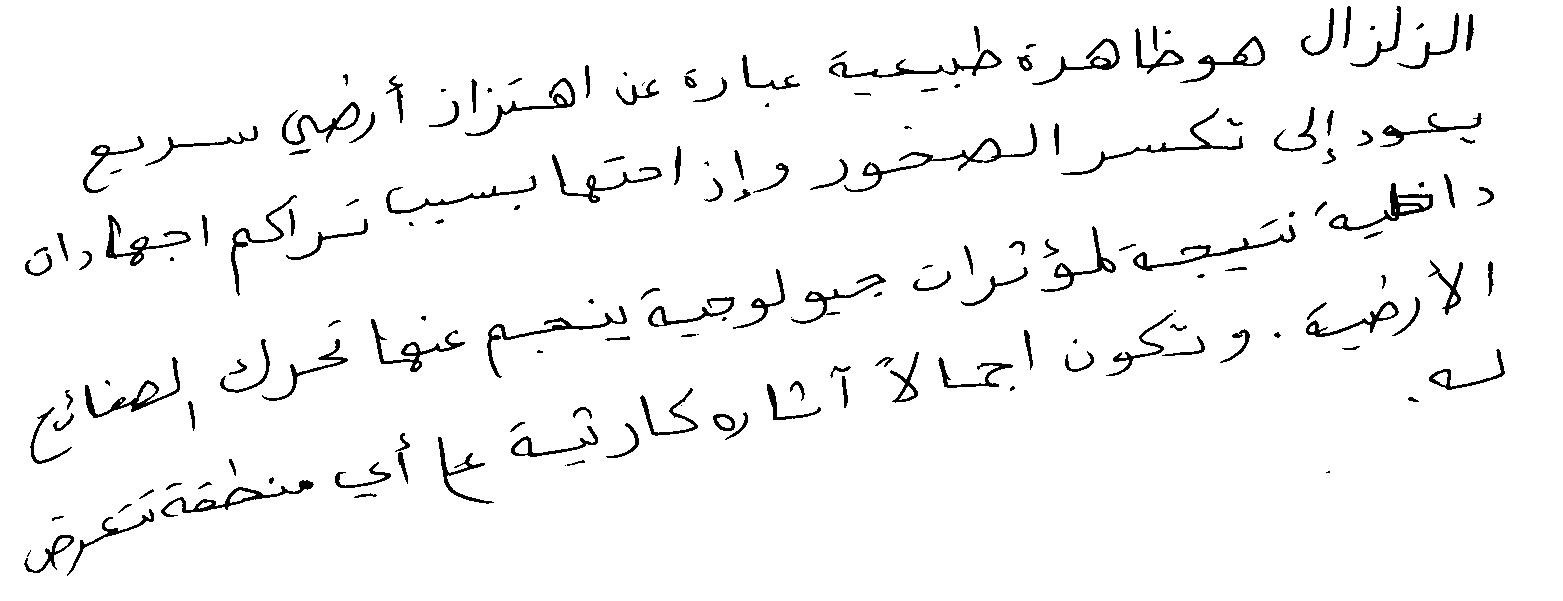 الزلزال هو ظاهرة طبيعية عبارة عن اهتزاز أرضي سريع
يعود إلى تكسر الصخور وإزاحتها بسبب تراكم اجهادات
داخلية نتيجة لمؤثرات جيولوجية ينجم عنها تحرك الصفائح
الأرضية. وتكون اجمالاً آثاره كارثية على أي منطقة تتعرض
له.